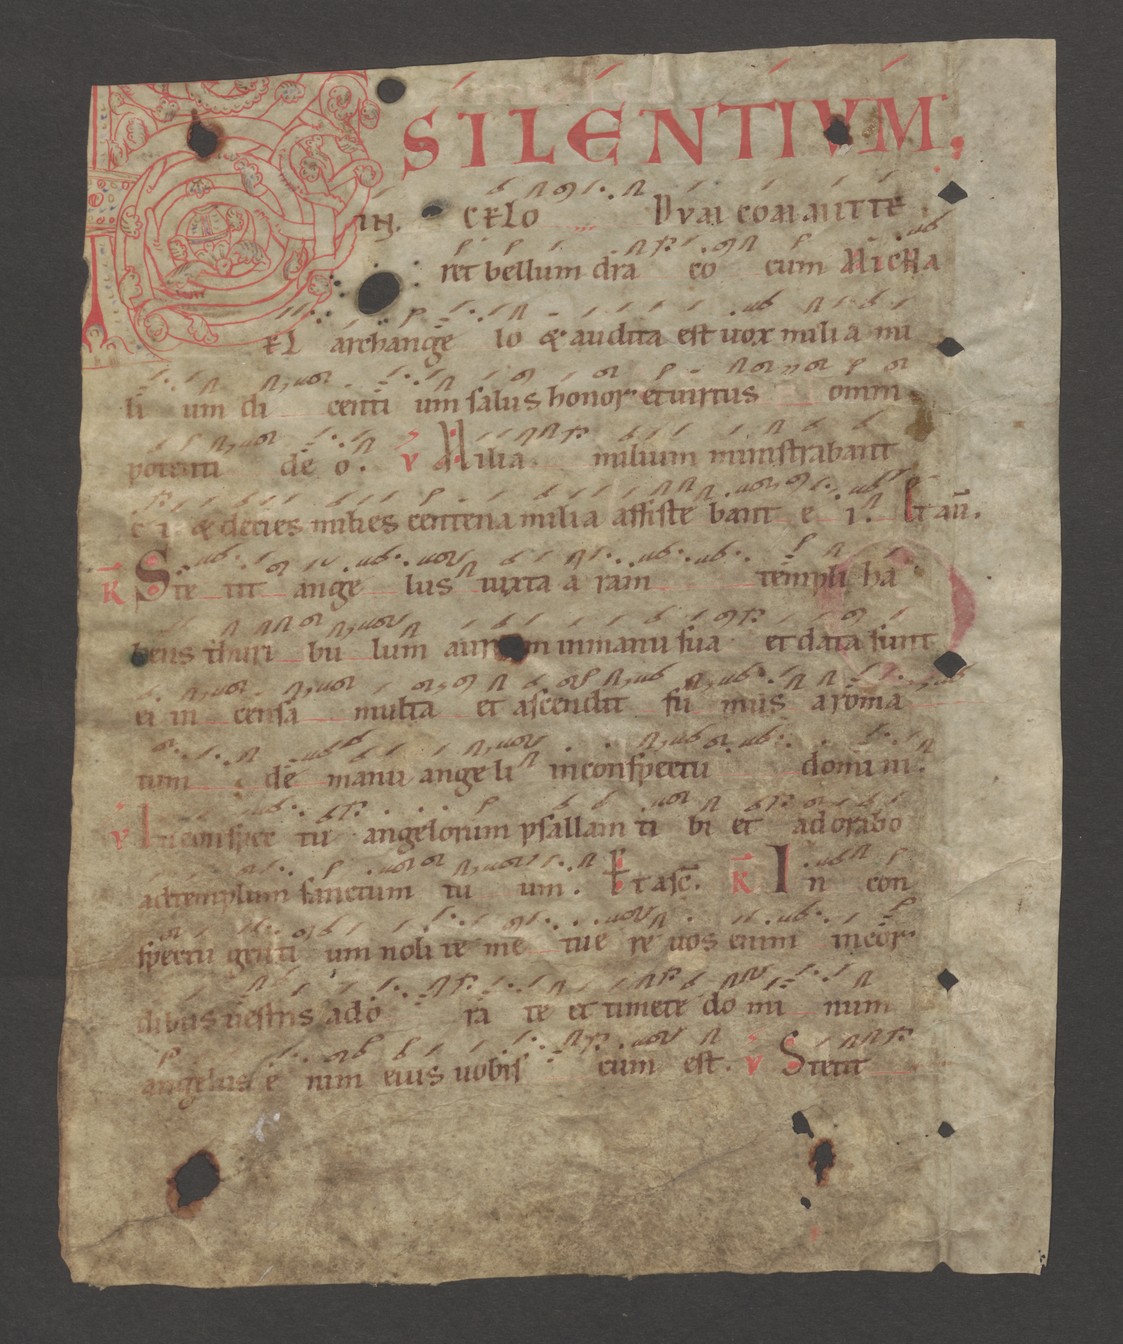 SILENTIVM;
IN. CELO DVM COMMITTE
ret bellum dra co cum MICHA
EL archange lo & audita est uox milia mi
li um di centi um salus honor et uirtus omni
potenti de o. V Milia milium ministrabant
e i & decies milies centena milia assiste bant e i. Et aū.
R Ste tit ange lus iuxta a ram templi ha
bens thuri bu lum aureum inmanu sua et data sunt
ei in censa multa et ascendit fu mus aroma
tum de manu ange li inconspectu domi ni.
V Inconspec tu angelorum psallam ti bi et adorabo
adtemplum sanctum tu um. Et asc. R In con
spectu genti um noli te me tue re uos enim incor
dibus uestris ado ra te et timete do mi num
angelus e nim eius uobis cum est. V Stetit